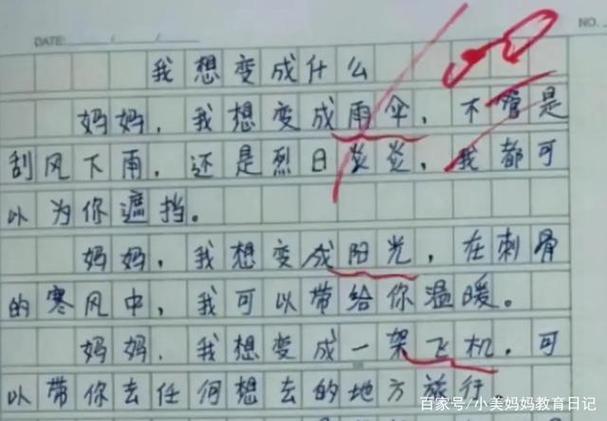 DATE: / /
NO.
我想变成什么
妈妈，我想变成雨伞，不管是
刮风下雨，还是烈日炎炎，我都可
以为你遮挡。
妈妈，我想变成阳光，在刺骨
的寒风中，我可以带给你温暖。
妈妈，我想变成一架飞机，可
以带你去任何想去的地方旅行。
百家号/小美妈妈教育日记